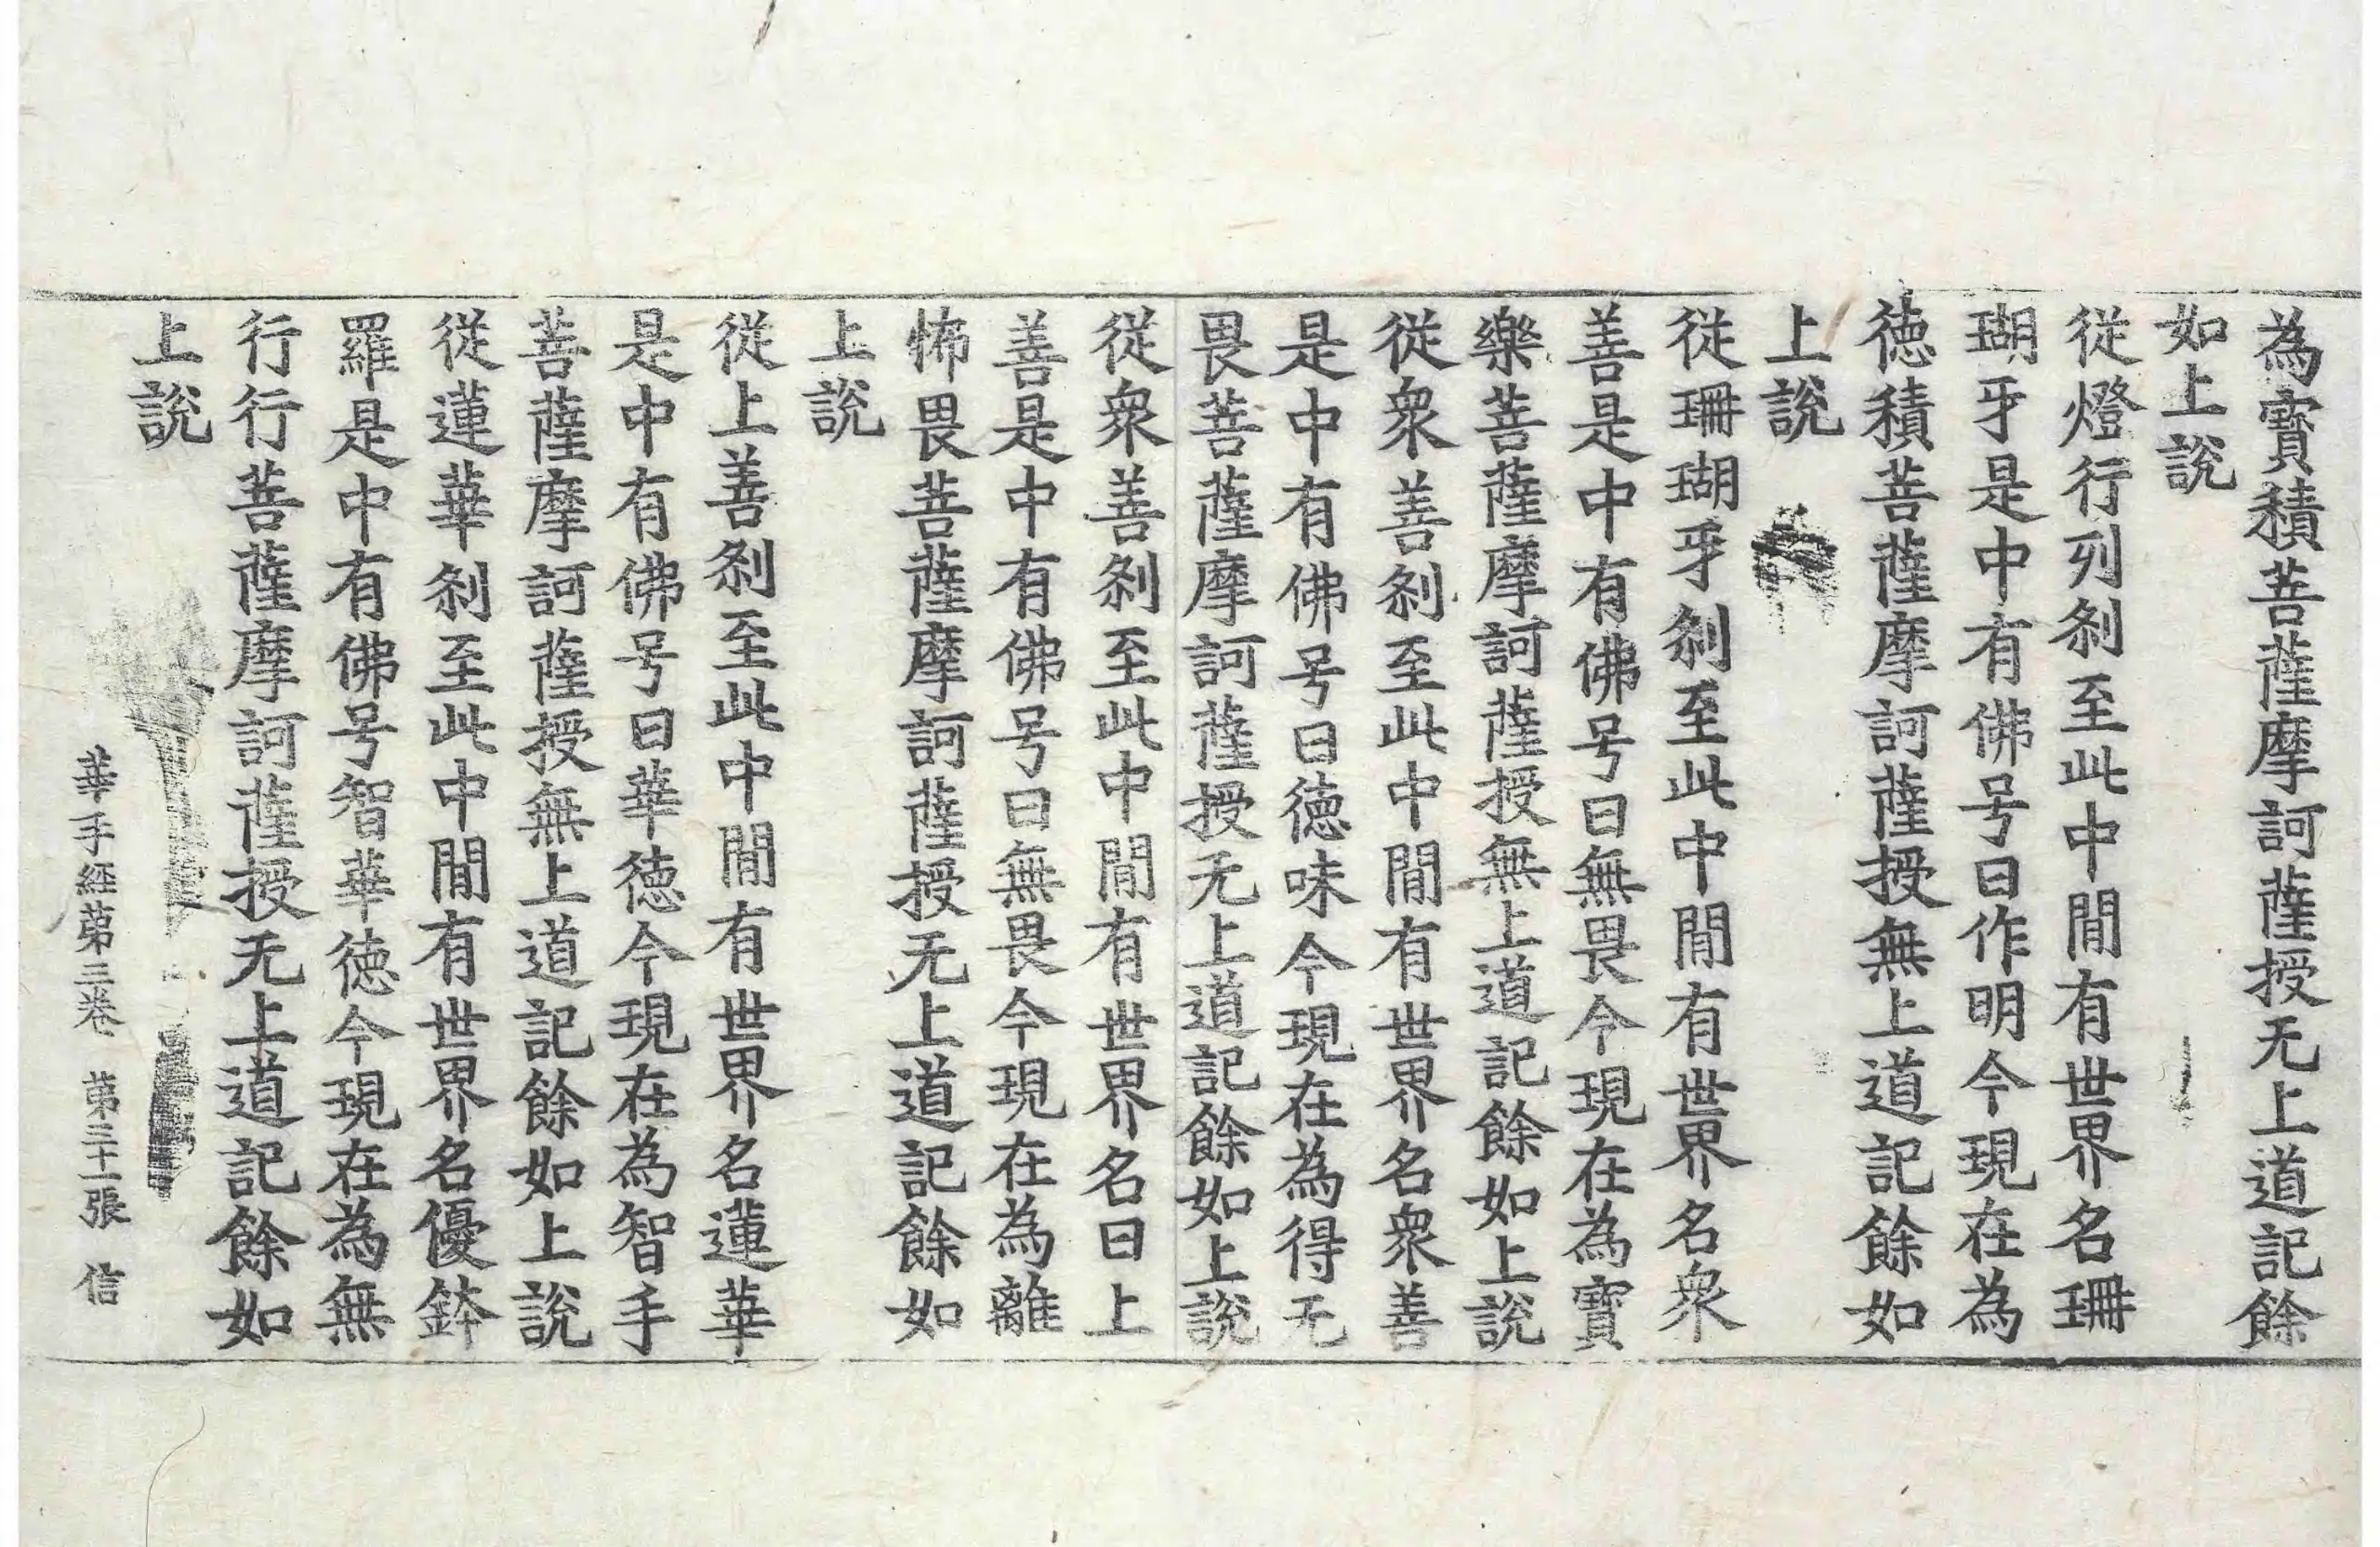 為寶積菩薩摩訶薩授无上道記餘
如上說
從燈行列刹至此中閒有世界名珊
瑚牙是中有佛号曰作明今現在為
德積菩薩摩訶薩授無上道記餘如
上說
從珊瑚牙刹至此中閒有世界名衆
善是中有佛号曰無畏今現在為寶
樂菩薩摩訶薩授無上道記餘如上說
從衆善刹至此中閒有世界名衆善
是中有佛号曰德味今現在為得无
畏菩薩摩訶薩授无上道記餘如上說
從衆善刹至此中閒有世界名曰上
善是中有佛号曰無畏今現在為離
怖畏菩薩摩訶薩授无上道記餘如
上說
從上善刹至此中閒有世界名蓮華
是中有佛号曰華德今現在為智手
菩薩摩訶薩授無上道記餘如上說
從蓮華刹至此中閒有世界名優鉢
羅是中有佛号智華德今現在為無
行行菩薩摩訶薩授无上道記餘如
上說
華手経第三卷 第三十一張 信